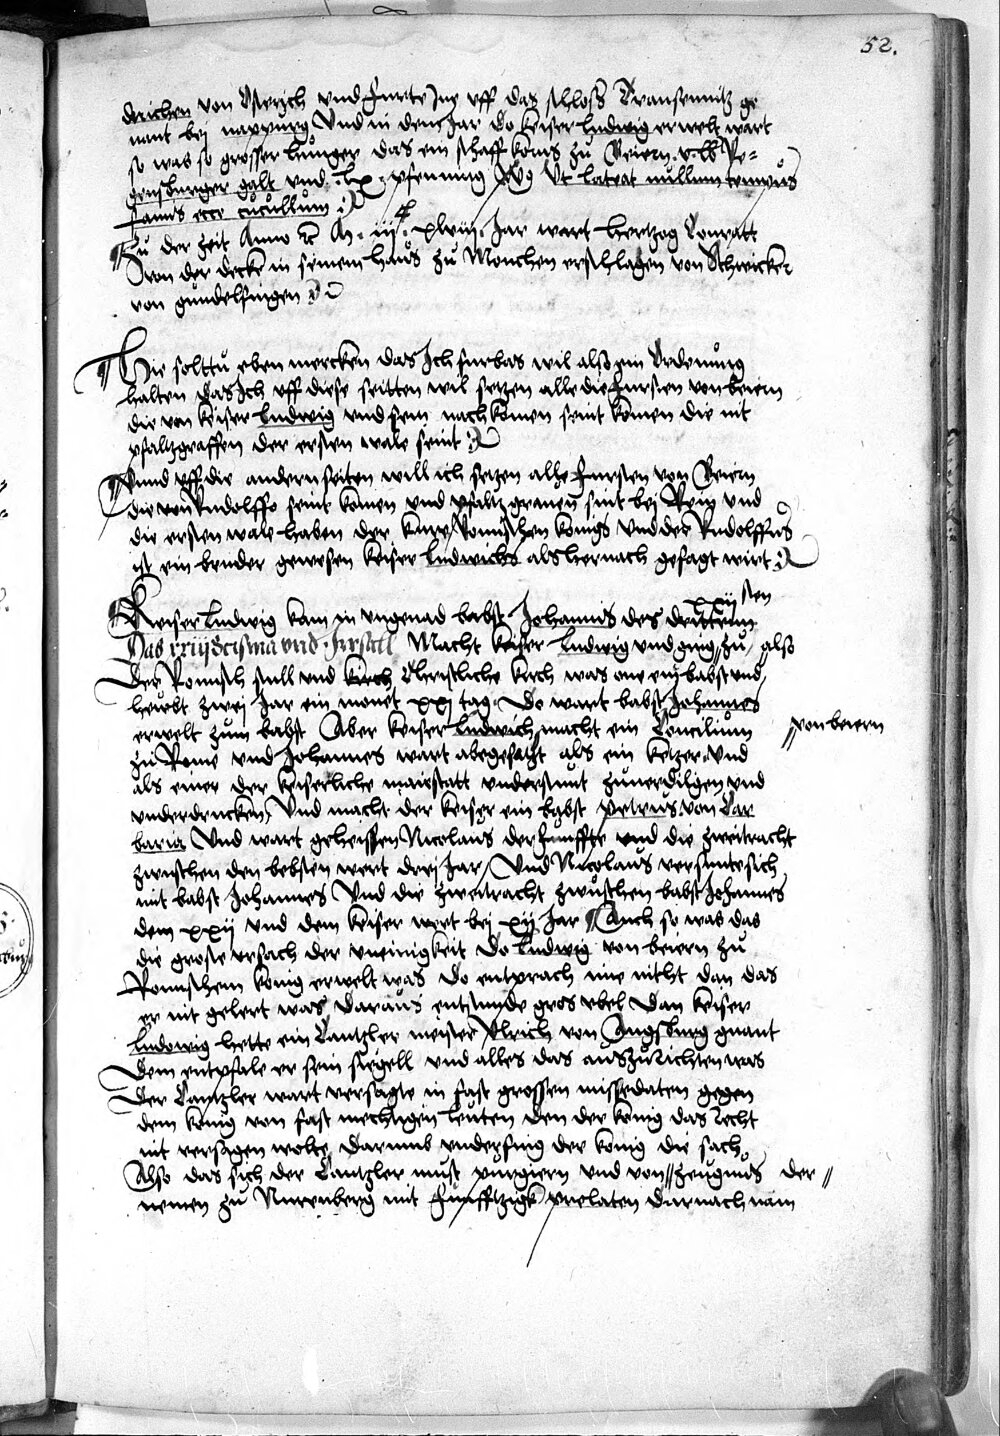 52.
derichen von Osterich vnd furte Jne vff das schloss Transennitz ge
nant bei nappurg Vnd in dem Jar do keiser Ludwig erwelt wart
so was so grosser hunger das ein schaff korns zu Beiern v. lb Re=
genspurger galt vnd .lx. pfenning Vt lateat nullum tempus
famis ecce cucullum
Zu der zeit Anno iijc xlviij Jar wart hertzog Conratt
von der decke in seinem haus zu Monchen erschlagen von Schwicker
von gundelfingen
Hie soltu eben mercken das Ich furbas wil also ein Ordenung
halten Das Ich vff diese seitten wil setzen alle die fursten von beiern
die von keiser Ludwig vnd sein nachkomen seint komen die nit
pfaltzgraffen der ersten wale seint
Vnnd vff die andern seiten will ich setzen alle fursten von Beiern
die von Rudolffo seint komen vnd pfaltzgrauen sint bei Rein vnd
die ersten wale haben der kure Romischen konigs vnd der Rudolffus
ist ein bruder gewesen keiser Ludwichs als hernach gesagt wirt
xxij sten
Keiser Ludwig kam in vngenad babst Johannis des dritten
Das xxiij Scisma vnd Jrrsall Macht keiser Ludwig vnd ging zu also
Der Romisch stull vnd kirch Christliche kirch was one ein babst vnd
heubt zwei Jar ein monet xxj tag. Do wart babst Johannes
erwelt zum babst Aber keiser Ludwich macht ein Concilium von beiern
zu Rome vnd Johannes wart abegesatzt als ein ketzer vnd
als einer der keiserliche maiestatt vnderstunt zuuerdilgen vnd
vnderdrucken, Vnd macht der keiser ein babst petrus von Car
baria Vnd wart geheissen Nicolaus der funffte vnd die zweitracht
zwuschen den bebsten wert drei Jar, Vnd Nicolaus versunte sich
mit babst Johannes Vnd die zweitracht zwuschen babst Johannes
dem xxij vnd dem keiser wert bei xij Jar Auch so was das
die groste vrsach der vneinigkeit Do Ludwig von beiern zu
Romischem konig erwelt was do entprach nie nicht dan das
er nit gelert was daraus entstunde gros vbel Dan keiser
Ludowig hette ein Cantzler meister Vlrich von Augspurg gnant
Dem entpfale er sein siegell vnd alles das auszurichten was
Der Cantzler wart versagte in fast grossen missedaten gegen
dem konig von fast mechtigen leuten den der konig das recht
nit versagen wolte, darumb vnderfing der konig die sach
Also das sich der Cantzler must purgiern vnd von zeugnus der
nemen zu Nurenberg mit funfftzigk prelaten darnach nam